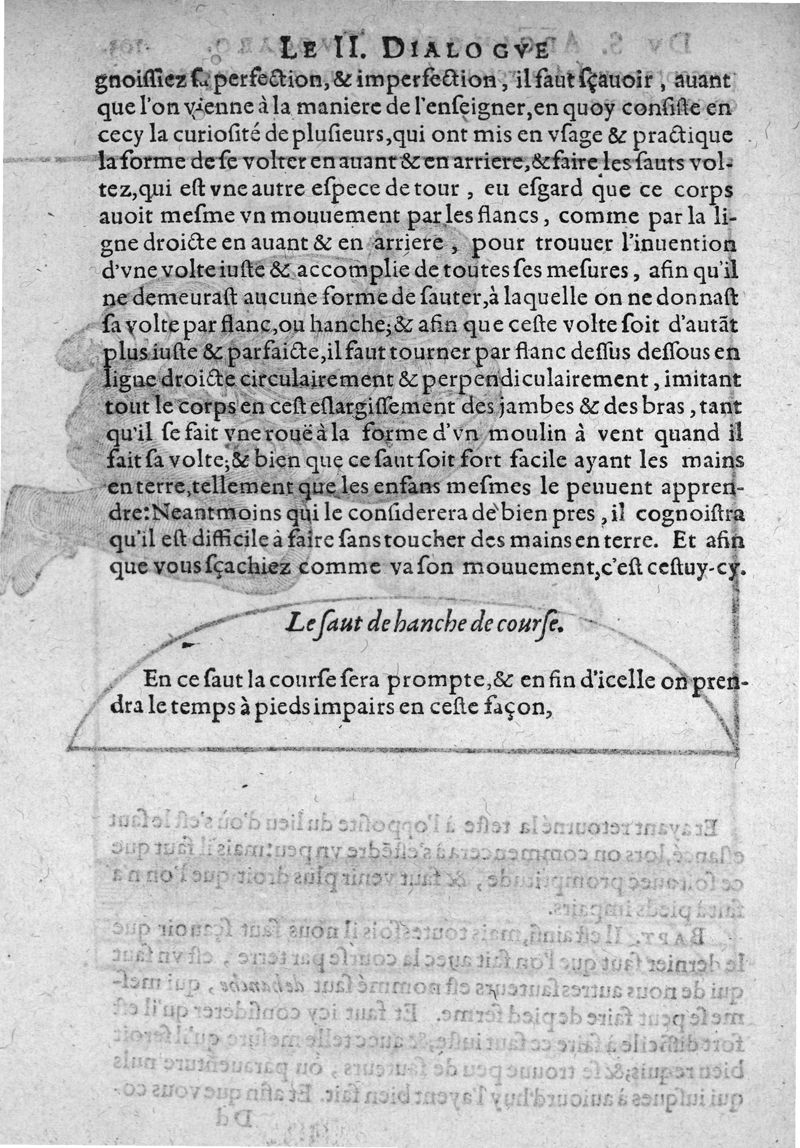 LE II. DIALOGVE
gnoissiez sa perfection, & imperfection, il faut sçauoir, auant
que l'on vienne à la maniere de l'enseigner, en quoy consiste en
cecy la curiosité de plusieurs, qui ont mis en vsage & practique
la forme de se volter en auant & en arriere, & faire les sauts vol-
tez, qui est vne autre espece de tour, eu esgard que ce corps
auoit mesme vn mouuement par les flancs, comme par la li-
gne droicte en auant & en arriere, pour trouuer l'inuention
d'vne volte iuste & accomplie de toutes ses mesures, afin qu'il
ne demeurast aucune forme de sauter, à laquelle on ne donnast
sa volte par flanc, ou hanche; & afin que ceste volte soit d'autãt
plus iuste & parfaicte, il faut tourner par flanc dessus dessous en
ligne droicte circulairement & perpendiculairement, imitant
tout le corps en cest eslargissement des jambes & des bras, tant
qu'il se fait vne rouë à la forme d'vn moulin à vent quand il
fait sa volte; & bien que ce saut soit fort facile ayant les mains
en terre, tellement que les enfans mesmes le peuuent appren-
dre: Neantmoins qui le considerera de bien pres, il cognoistra
qu'il est difficile à faire sans toucher des mains en terre. Et afin
que vous sçachiez comme va son mouuement, c'est cestuy-cy.
Le saut de hanche de course.
En ce saut la course sera prompte, & en fin d'icelle on pren-
dra le temps à pieds impairs en ceste façon,